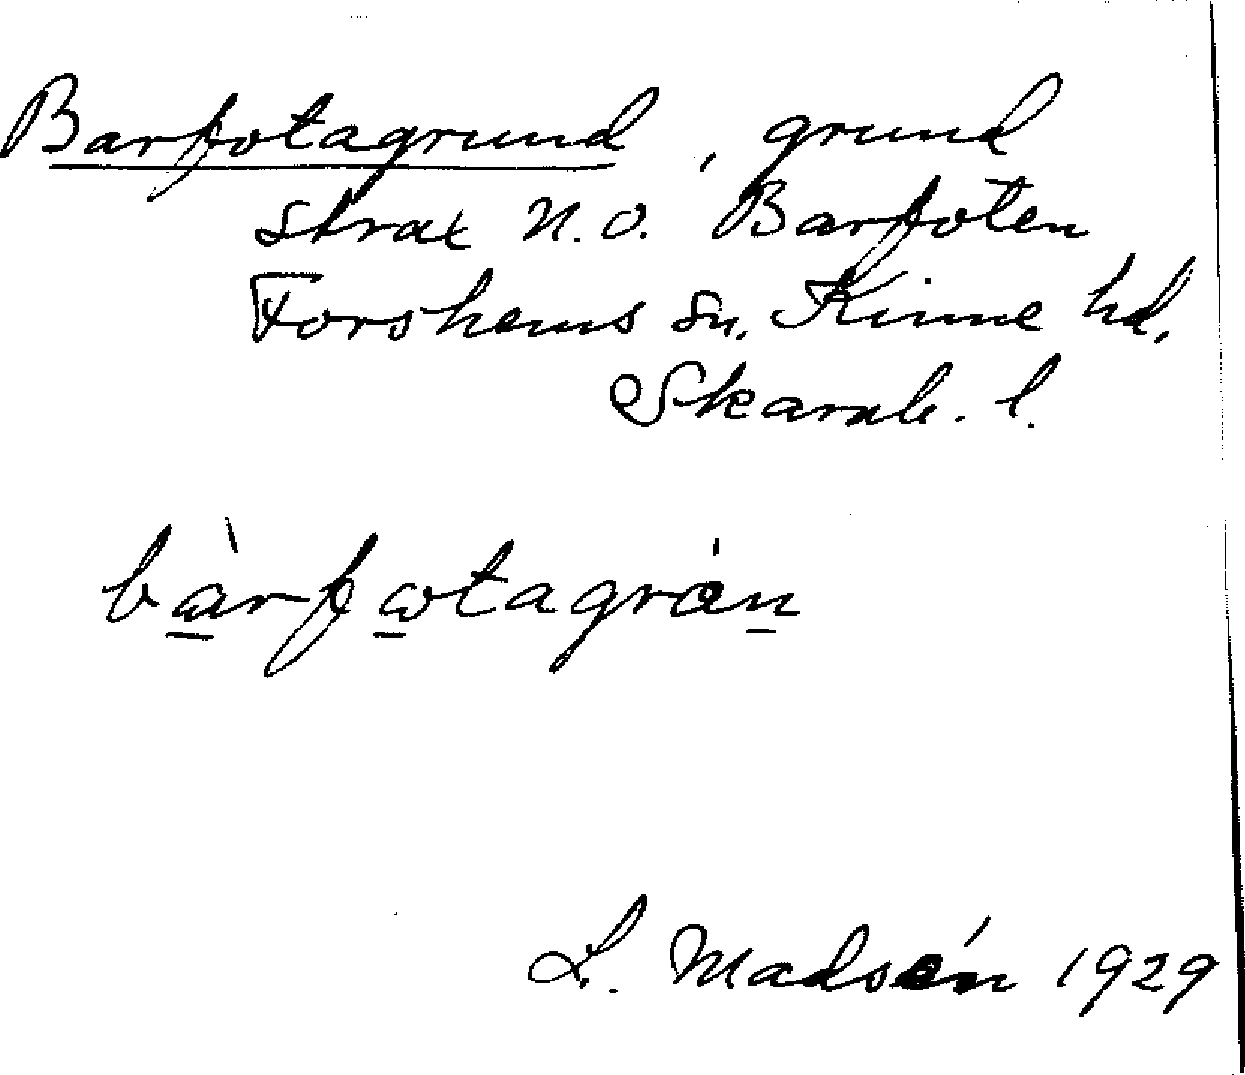 Barfotagrund, grund
strax N.O. Barfoten
Forshems sn. Kinne hd.
Skarab. l.
bàrfotagrán
L. Madsén 1929